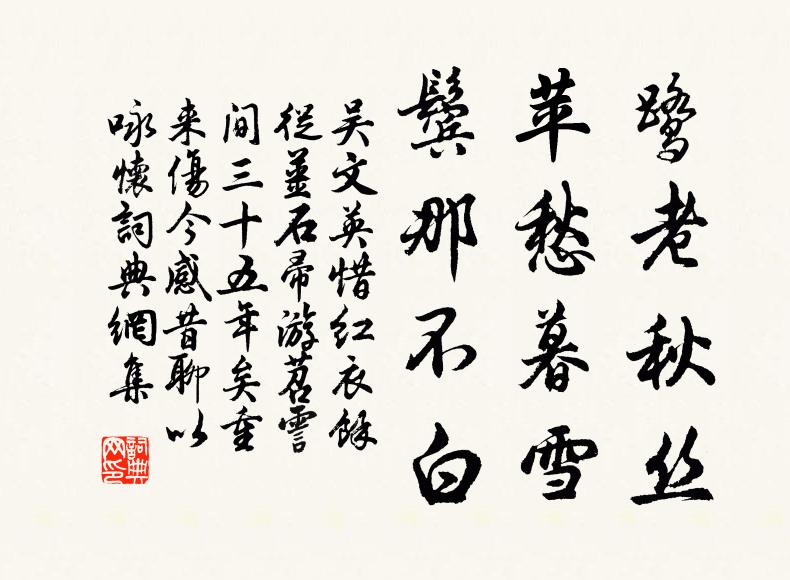 鹭老秋丝
苹愁暮雪
鬓那不白
吴文英惜红衣馀
從薑石帚游苕霅
间三十五年矣重
来傷今感昔聊以
咏懷詞典網集
詞典網印